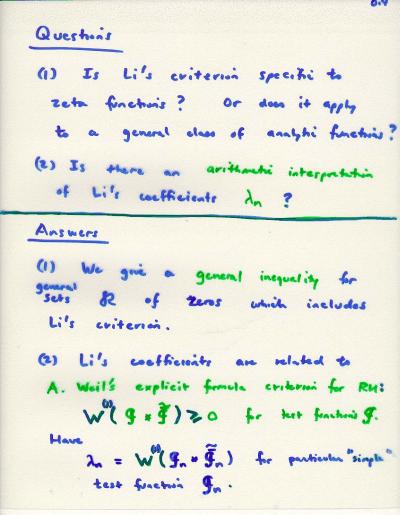 Questions
(1) Is Li's criterion specific to
zeta functions? Or does it apply
to a general class of analytic functions?
(2) Is there an arithmetic interpretation
of Li's coefficients λn ?
Answers
(1) We give a general inequality for
general sets R of zeros which includes
Li's criterion.
(2) Li's coefficients are related to
A. Weil's explicit formula criterion for RH:
W⁽¹⁾(g * g̃) ≥ 0 for test functions g.
Have
λn = W⁽¹⁾(gn * g̃n) for particular "simple"
test function gn.